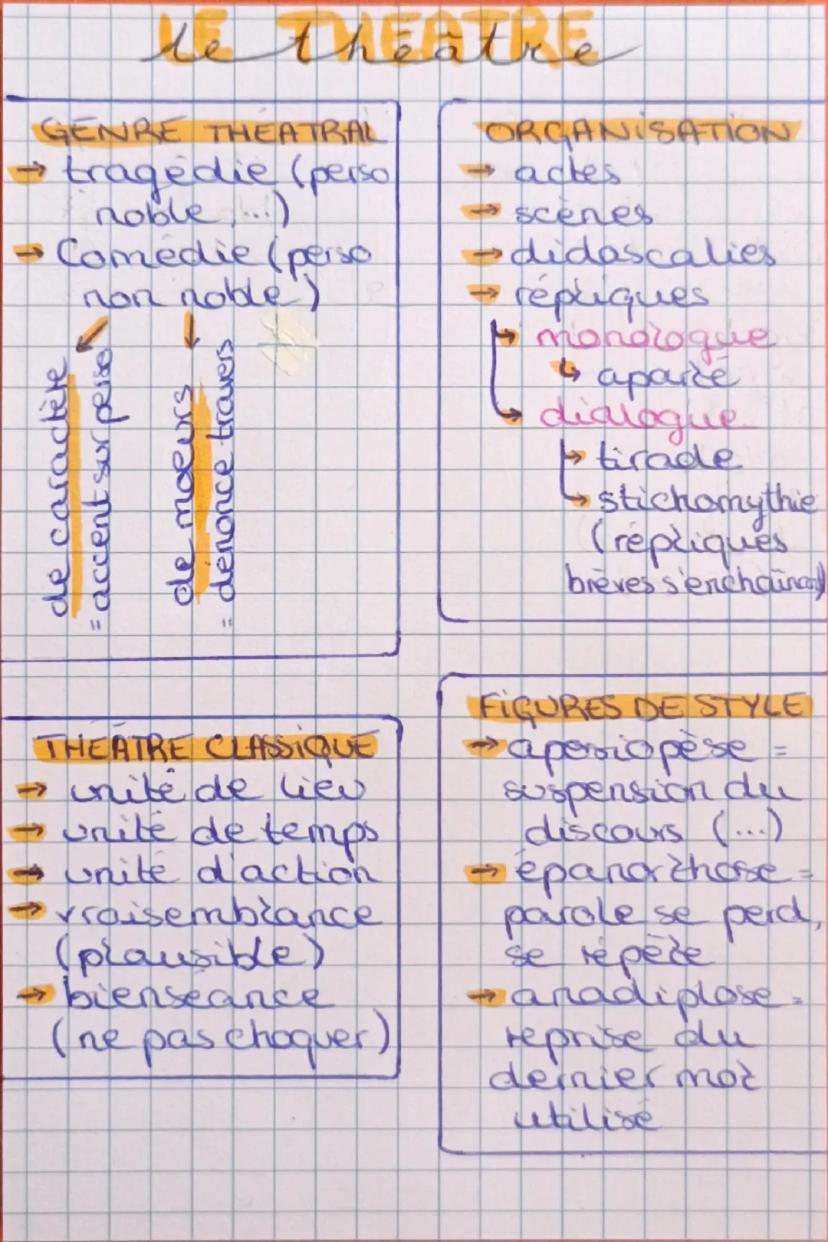 LE THEATRE
le théâtre
GENRE THEATRAL
→ tragédie (perso
noble, ...)
→ Comédie (perso
non noble)
de caractère
= accent sur perso
de moeurs
= dénonce travers
ORGANISATION
→ actes
→ scènes
→ didascalies
→ répliques
→ monologue
↳ aparté
→ dialogue
→ tirade
→ stichomythie
(répliques
brèves s'enchaînant)
THEATRE CLASSIQUE
→ unité de lieu
→ unité de temps
→ unité d'action
→ vraisemblance
(plausible)
→ bienséance
(ne pas choquer)
FIGURES DE STYLE
→ aposiopèse =
suspension du
discours (...)
→ épanorthose =
parole se perd,
se répète
→ anadiplose =
reprise du
dernier mot
utilisé